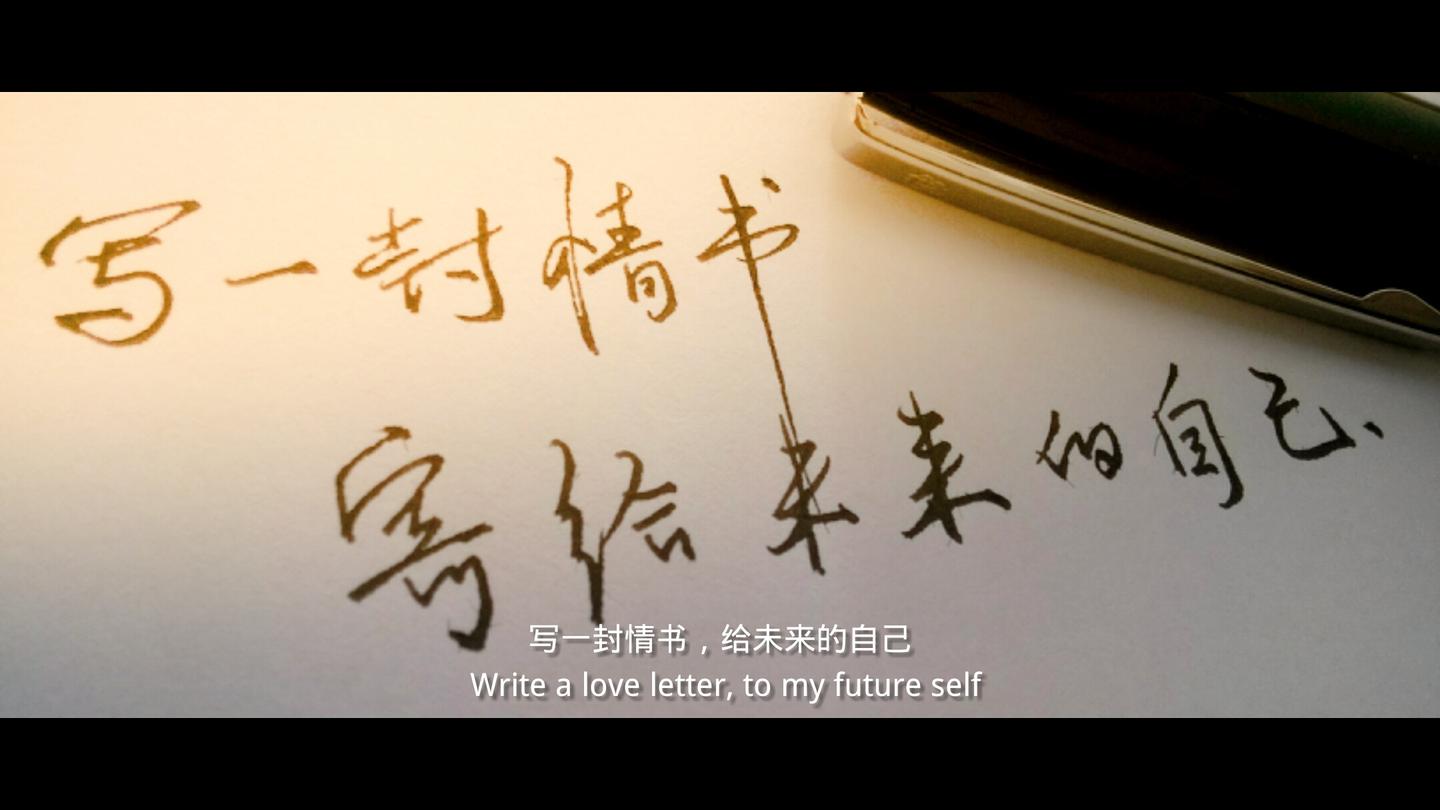 写一封情书
寄给未来的自己、
写一封情书，给未来的自己
Write a love letter, to my future self